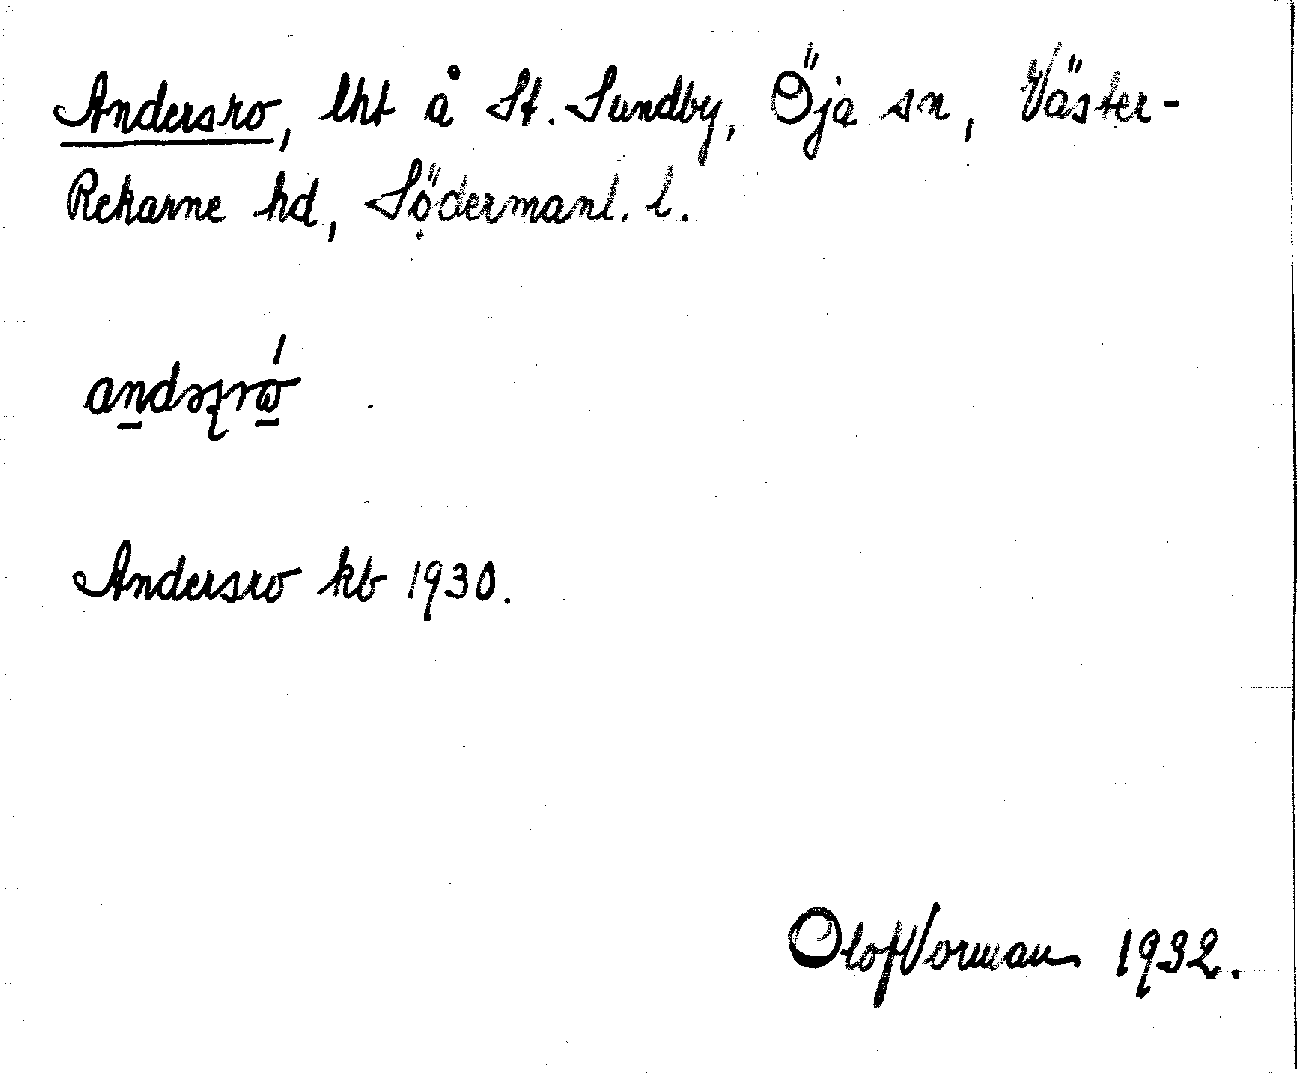 Andersro, lht å St. Sundby, Öja sn, Väster-
Rekarne hd, Södermanl. l.
Andersro kb 1930.
Olof Vorman 1932.